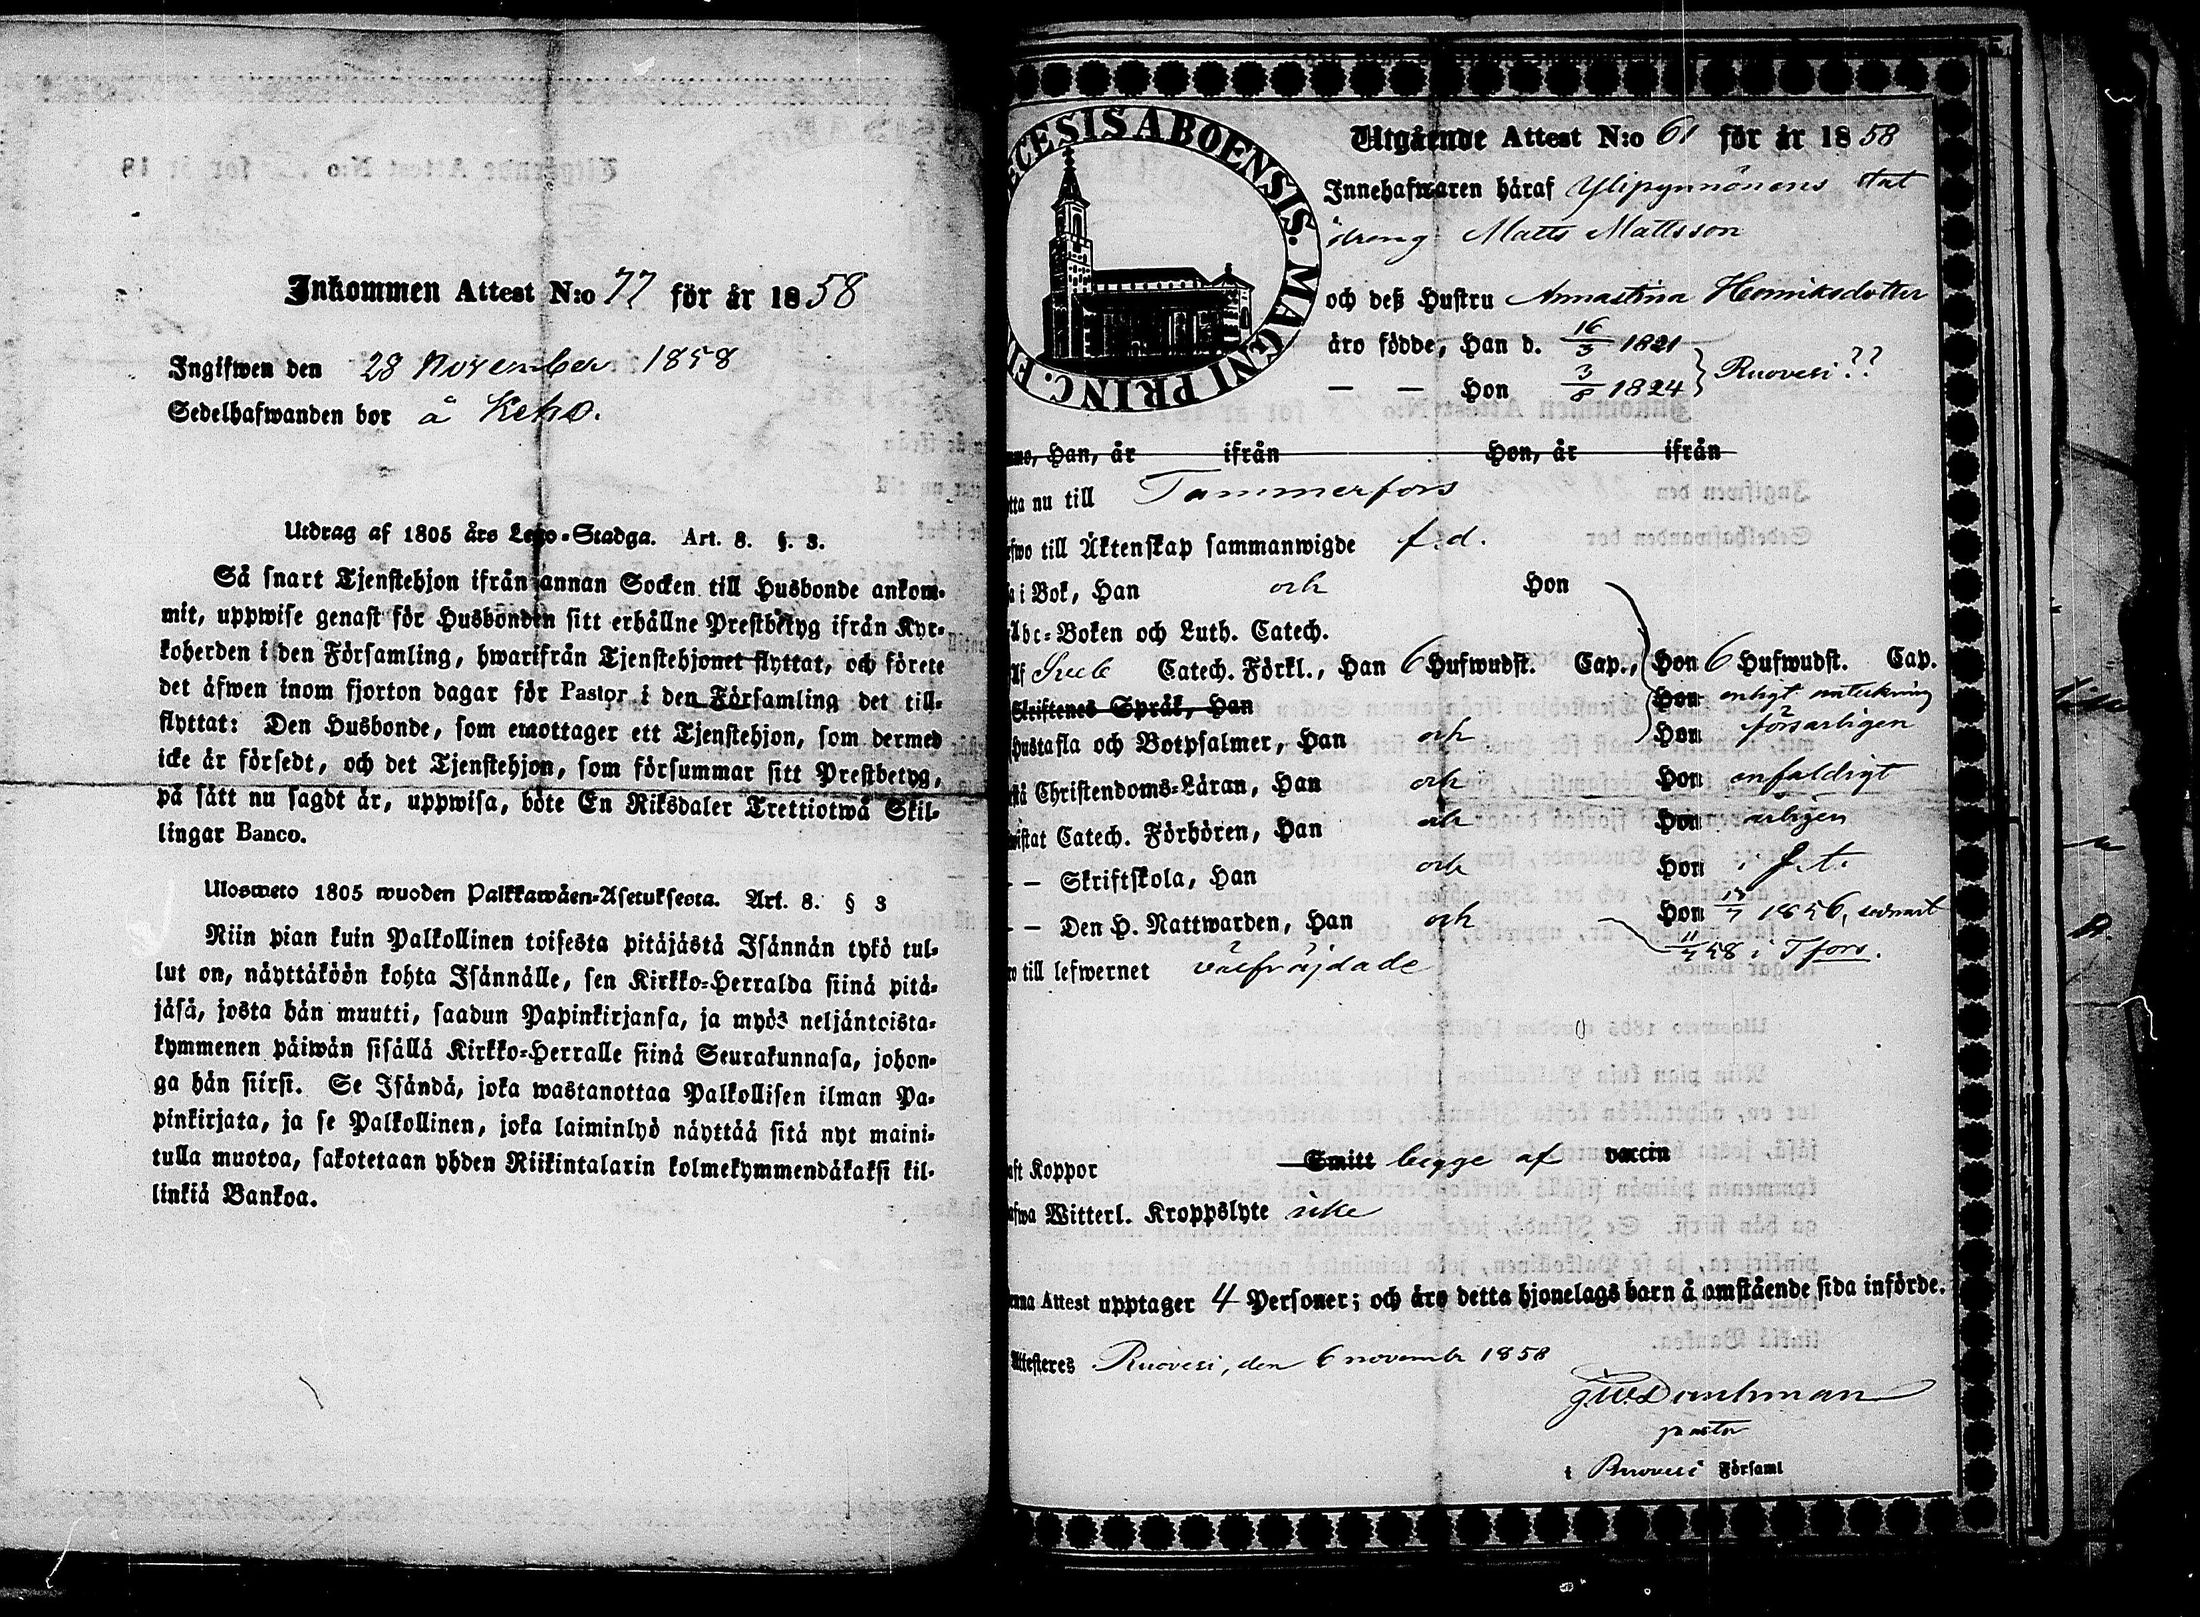 Inkommen Attest N:o 77 för år 1858
Ingifwen den 28 November 1858
Sedelhafwanden bor å Keho.
Utdrag af 1805 års Lego-Stadga. Art. 8. §. 3.
Så snart Tjenstehjon ifrån annan Socken till Husbonde ankom-
mit, uppwise genast för Husbonden sitt erhållne Prestbetyg ifrån Kyr-
koherden i den Församling, hwarifrån Tjenstehjonet flyttat, och förete
det äfwen inom fjorton dagar för Pastor i den Församling det till-
flyttat: Den Husbonde, som emottager ett Tjenstehjon, som dermed
icke är försedt, och det Tjenstehjon, som försummar sitt Prestbetyg,
på sätt nu sagdt är, uppwisa, böte En Riksdaler Trettiotwå Skil-
lingar Banco.
Ulosweto 1805 wuoden Palkkawäen-Asetuksesta. Art. 8. § 3
Niin pian kuin Palkollinen toisesta pitäjästä Isännän tykö tul-
lut on, näyttäköön kohta Isännälle, sen Kirkko-Herralda siinä pitä-
jäsä, josta hän muutti, saadun Papinkirjansa, ja myös neljäntoista-
kymmenen päiwän sisällä Kirkko-Herralle siinä Seurakunnasa, johon-
ga hän siirsi. Se Isändä, joka wastanottaa Palkollisen ilman Pa-
pinkirjata, ja se Palkollinen, joka laiminlyö näyttää sitä nyt maini-
tulla muotoa, sakotetaan yhden Riikintalarin kolmekymmendäkaksi kil-
linkiä Bankoa.
ECESIS ABOENSIS. MAGNI PRINC. FI
Utgående Attest N:o 61 för år 1858
Innehafwaren häraf Ylipynnönens stat
dreng Matts Mattsson
och deß Hustru Annastina Henriksdotter
äro födde, Han d. 16/3 1821
— — Hon 3/8 1824 } Ruovesi ??
Han, år ifrån Hon, år ifrån
tta nu till Tammerfors
fwo till Äktenskap sammanwigde f.d.
a i Bok, Han och Hon
Abc-Boken och Luth. Catech.
Af Sveb Catech. Förkl., Han 6 Hufwudst. Cap., Hon 6 Hufwudst. Cap.
Skriftenes Språk, Han Hon enligt anteckning
Hustafla och Botpsalmer, Han och Hon försvarligen
stå Christendoms-Läran, Han och Hon enfaldigt
wistat Catech. Förhören, Han och Hon årligen
— — Skriftskola, Han och Hon i f.t.
— — Den H. Nattwarden, Han och Hon 13/7 1856, sednast
11/7 58 i Tfors.
o till lefwernet välfräjdade
aft Koppor Smitt begge af vaccin
afwa Witterl. Kroppslyte icke
enna Attest upptager 4 Personer; och äro detta hjonelags barn å omstående sida införde.
Attesteres Ruovesi, den 6 november 1858
pastor
i Ruovesi Församl